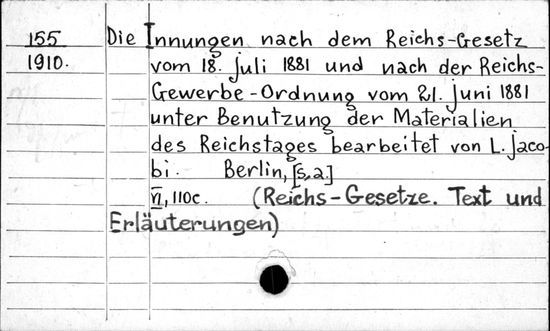 155
1910.
Die Innungen nach dem Reichs-Gesetz
vom 18. Juli 1881 und nach der Reichs-
Gewerbe-Ordnung vom 21. Juni 1881
unter Benutzung der Materialien
des Reichstages bearbeitet von L. Jaco-
bi. Berlin, [s.a.]
VI, 110c. (Reichs-Gesetze. Text und
Erläuterungen)